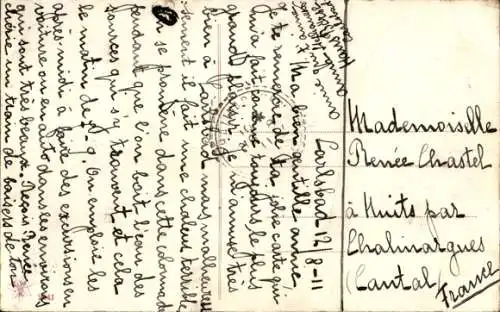 Carlsbad 12/8-11
Ma bien gentille amie,
Je te remercie de ta jolie carte qui
m'a fait comme toujours le plus
grand plaisir. Je m'amuse très
bien à Carlsbad mais malheureu
sement il fait une chaleur terrible
on se promène dans cette colonnade
pendant que l'on boit l'eau des
sources qui s'y trouvent et cela
le matin de 7 à 9. On emploie les
après-midi à faire des excursions en
voiture ou en auto dans les environs
qui sont très beaux. Reçois Renée
chérie un train de baisers de ton
amie qui t'aime
Mademoiselle
Renée Chastel
à Nuits par
Chalinargues
(Cantal)
France